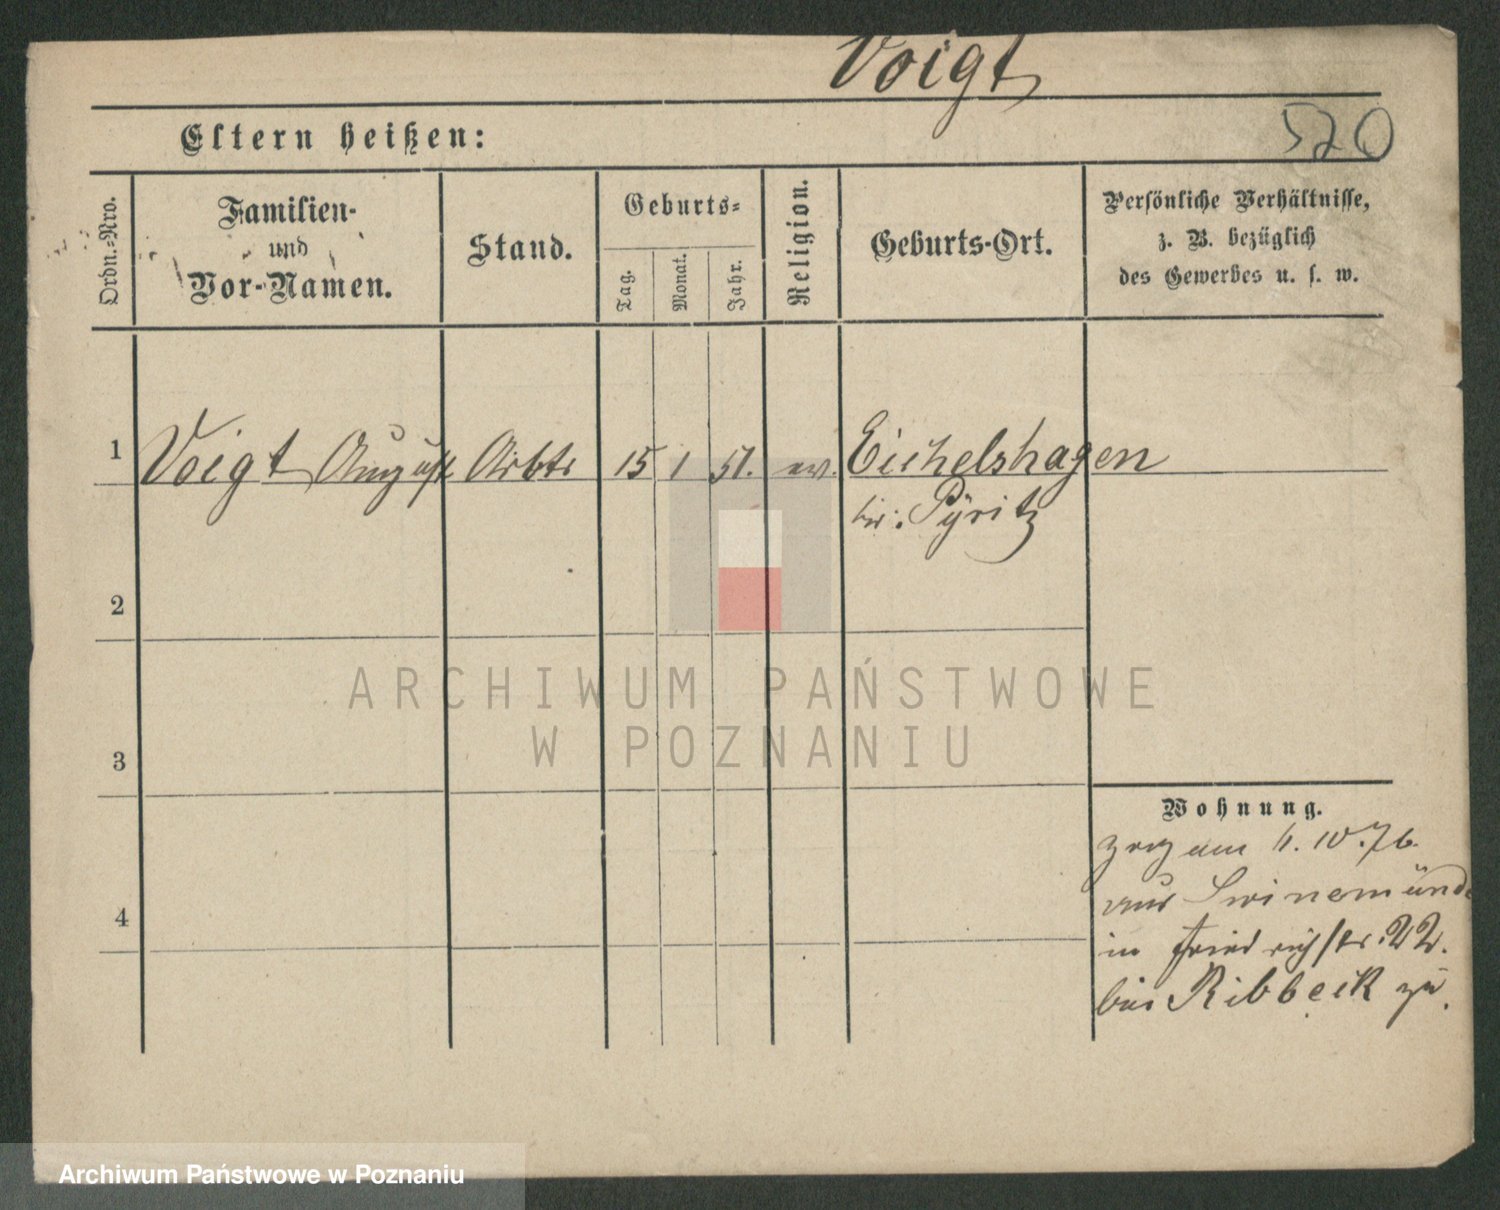 Voigt
570
Eltern heißen:
Ordn.-Nro.
Familien-
und
Vor-Namen.
Stand.
Geburts-
Tag.
Monat.
Jahr.
Religion.
Geburts-Ort.
Persönliche Verhältnisse,
z. B. bezüglich
des Gewerbes u. s. w.
1 Voigt August Arbtr 15 1 51. ev. Eichelshagen
Pyritz
2
3
4
ARCHIWUM PAŃSTWOWE
W POZNANIU
Wohnung.
am 10.76
aus Swinemünde
in Friedrichstr. 22.
bei Ribbeck zu.
Archiwum Państwowe w Poznaniu